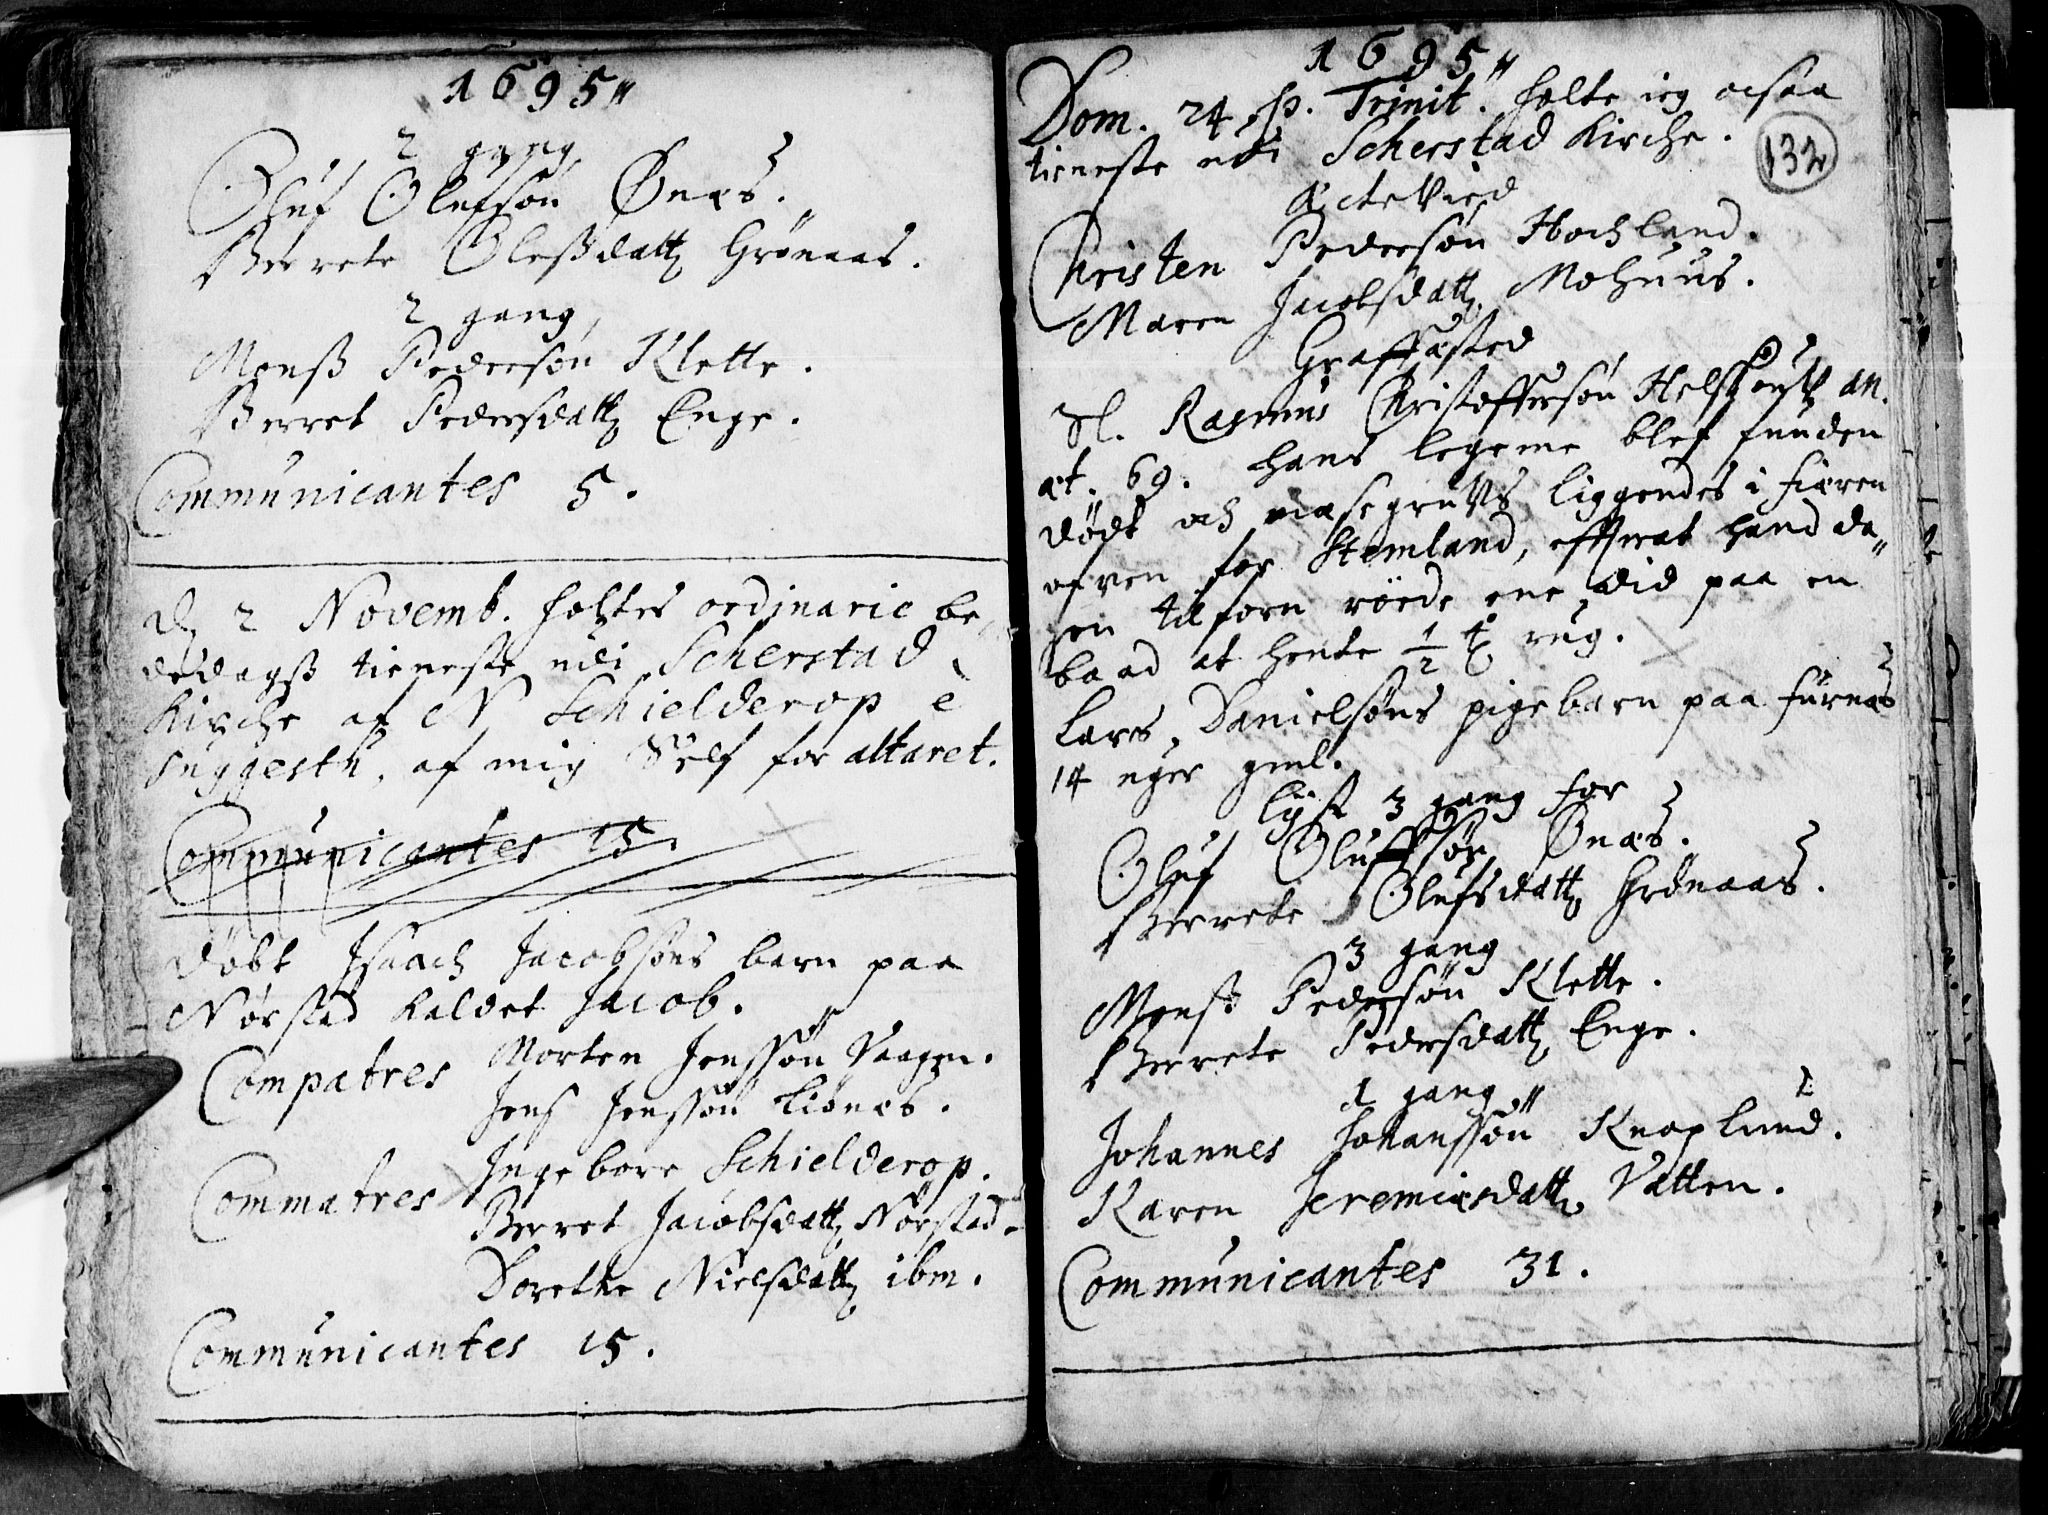 1695"
2 gang
Oluf Olufsøn Ønæs.
Berrete Oleßdattr Grønaas.
2 gang,
Monß Pedersøn Klette.
Berret Pedersdattr Enge.
Communicantes 5.
d. 2 Novemb. holtes ordinarie be,,
dedagß tieneste udi Scherstad
Kirche af N Schielderop è
suggestu, af mig Self for altaret.
Communicantes 15.
døbt Isaach Jacobsøns barn paa
Nørstad kaldet Jacob.
Compatres Morten Jenssøn Vaagen.
Jens Jenssøn Liønæs.
Commatres Ingebore Schielderop.
Berret Jacobsdattr Nørstad.
Dorethe Nielsdattr ibm.
Communicantes 15.
1695"
132
Dom. 24 p. Trinit. holte ieg ocsaa
tieneste udi Scherstad Kirche.
Ectevied
Christen Pedersøn Hochland.
Maren Jacobsdattr Mohuus.
Graffæsted
Sl. Rasmus Christoffersøn an.
æt. 69. hans legeme blef funden
dødt och liggendes i fiæren
ofven for Stemland, efterat hand da,,
gen tilforn roede ene did paa en
baad at hente 1/2 rug.
Lars Danielsøns pigebarn paa Furnæs
14 uger gml.
lyst 3 gang for
Oluf Oluffsøn Ønæs.
Berrete Olufsdattr Grønaas.
3 gang
Monß Pedersøn Klette.
Berrete Pedersdattr Enge.
1 gang
Johannes Johanssøn Knaplund.
Karen Jeremiæsdattr Vatten.
Communicantes 31.